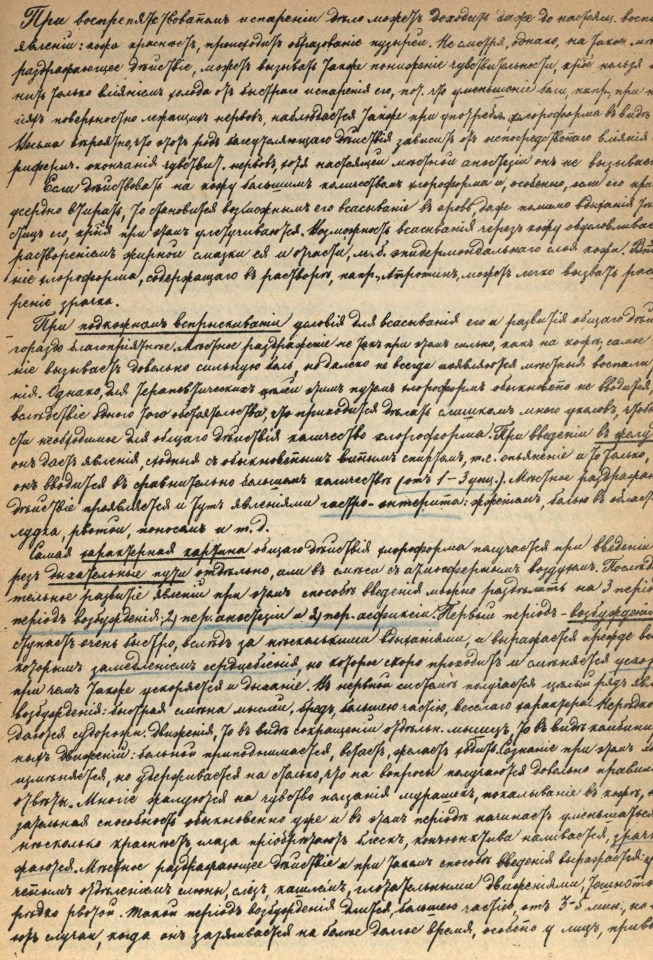 При воспрепятствованномъ испареніи дѣло можетъ доходить даже до настоящ. воспа
явленій: кожа краснѣетъ, происходитъ образованіе пузырей. Не смотря, однако, на такое мѣ
раздражающее дѣйствіе, можетъ вызывать также пониженіе чувствительности, крое нельзя
нить только вліяніемъ холода отъ быстраго испаренія его, пот. что уменьшеніе боли, напр., при
поверхностно лежащихъ нервовъ, наблюдается также при употребл. хлороформа въ видѣ
Весьма вѣроятно, что этотъ родъ болеутоляющаго дѣйствія зависитъ отъ непосредственнаго вліянія
риферич. окончанія чувствит. нервовъ, хотя настоящей мѣстной анестезіи онъ не вызывае
Если дѣйствовать на кожу большимъ количествомъ хлороформа и, особенно, если его при
усердно втирать, то становится возможнымъ его всасываніе въ кровь даже помимо вдыханія
стицъ его, крыя при этомъ улетучиваются. Возможность всасыванія черезъ кожу обусловливае
раствореніемъ жирной смазки ея и отчасти, м. б. эпидермоидальнаго слоя кожи. Вти
ніе хлороформа, содержащаго въ растворѣ, напр., Атропинъ, можетъ легко вызвать рас
реніе зрачка.
При подкожномъ впрыскиваніи условія для всасыванія его и развитія общаго дѣй
гораздо благопріятнѣе. Мѣстное раздраженіе не такъ при этомъ сильно, какъ на кожѣ, самое
ніе вызываетъ довольно сильную боль, но далеко не всегда появляются мѣстныя воспали
нія. Однако, для терапевтическихъ цѣлей этимъ путемъ хлороформъ обыкновенно не вводится,
вслѣдствіе одного того обстоятельства, что приходится дѣлать слишкомъ много уколовъ, чтобы
сти необходимое для общаго дѣйствія количество хлороформа. При введеніи въ желу
онъ даетъ явленія, сходныя съ обыкновеннымъ виннымъ спиртомъ, т. е. опьяненіе и то только,
онъ вводится въ сравнительно большомъ количествѣ (отъ 1–3 унц.). Мѣстное раздража
дѣйствіе проявляется и тутъ явленіями гастро-энтерита: жженіемъ, болью въ област
лудка, рвотой, поносомъ и т. д.
Самая характерная картина общаго дѣйствія хлороформа получается при введеніи
резъ дыхательные пути отдѣльно, или въ смѣси съ атмосфернымъ воздухомъ. Послѣдо
тельное развитіе явленій при этомъ способѣ введенія можно раздѣлить на 3 пері
періодъ возбужденія; 2) пер. анестезіи и 3) пер. асфиксіи. Первый періодъ – возбужденія
ступаетъ очень быстро, вслѣдъ за нѣсколькими вдыханіями, и выражается прежде вс
которымъ замедленіемъ сердцебіенія, но которое скоро проходитъ и смѣняется ускоре
при чемъ также ускоряется и дыханіе. Въ нервной системѣ получается цѣлый рядъ явл
возбужденія: быстрая смѣна мыслей, бредъ, большею частію, веселаго характера. Нерѣдко
даются судорожн. движенія, то въ видѣ сокращеній отдѣльн. мышцъ, то въ видѣ комбини
ныхъ движеній: больной приподнимается, встаетъ, желаетъ ходить. Сознаніе при этомъ
измѣняется, но удерживается на столько, что на вопросы получаются довольно правиль
отвѣты. Многіе жалуются на чувство ползанія мурашей, покалываніе въ кожѣ,
зательная способность обыкновенно уже и въ этомъ періодѣ начинаетъ уменьшаться
нѣсколько краснѣетъ, глаза пріобрѣтаютъ блескъ, конъюнктива наливается, зрачк
жаются. Мѣстное раздражающее дѣйствіе и при такомъ способѣ введенія выражается: у
ченнымъ отдѣленіемъ слюны, слезъ, кашлемъ, глотательными движеніями, тошното
рѣдко рвотой. Такой періодъ возбужденія длится, большею частію, отъ 3–5 мин., но
ютъ случаи, когда онъ затягивается на болѣе долгое время, особенно у лицъ, привы